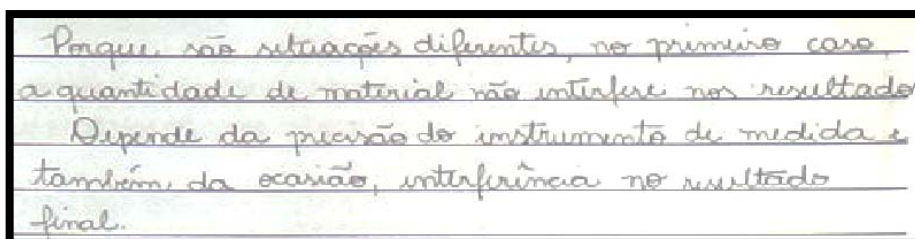 Porque, são situações diferentes, no primeiro caso,
a quantidade de material não interfere nos resultado
Depende da precisão do instrumento de medida e
também, da ocasião, interferência no resultado
final.